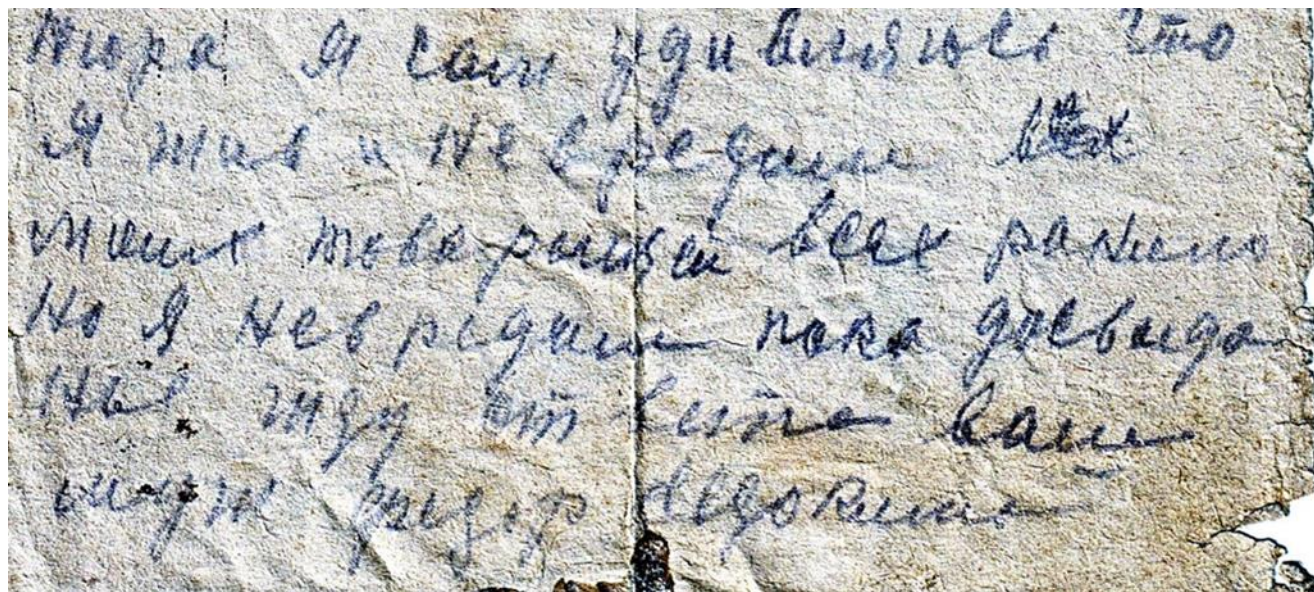 Нюра я сам удивляюсь что
я жив и не вредим
моих товарищей всех ранило
но я невредим пока досвида
ния жду ответа ваш
муж